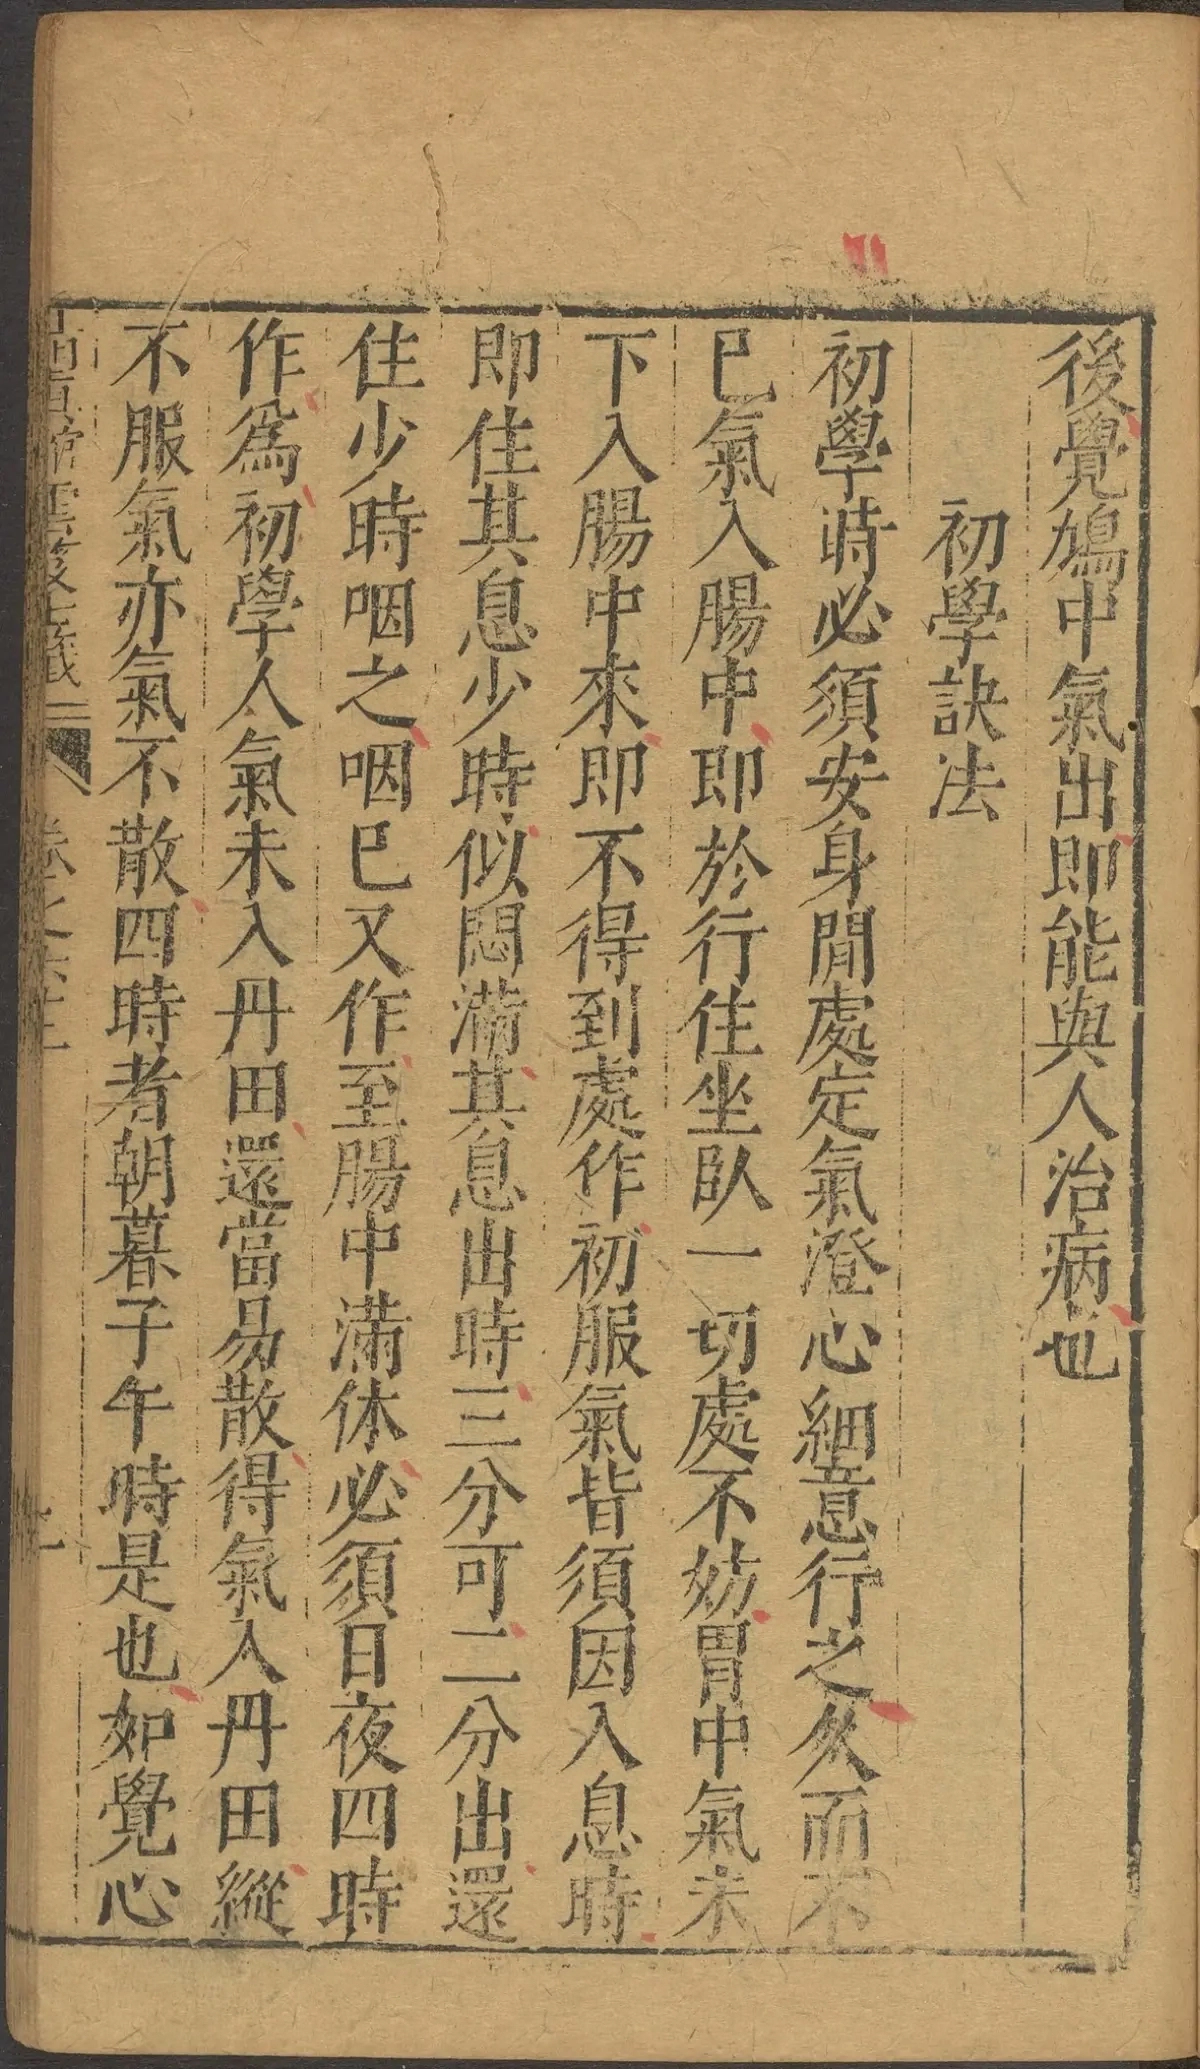 後覺鳩中氣出即能與人治病也
初學訣法
初學時必須安身閒處定氣澄心細意行之久而不
已氣入腸中即於行住坐臥一切處不妨胃中氣未
下入腸中來即不得到處作初服氣皆須因入息時
即住其息少時似悶滿其息出時三分可二分出還
住少時咽之咽已又作至腸中滿休必須日夜四時
作爲初學人氣未入丹田還當易散得氣入丹田縱
不服氣亦氣不散四時者朝暮子午時是也如覺心
清真館雲笈七籤 卷之六十一